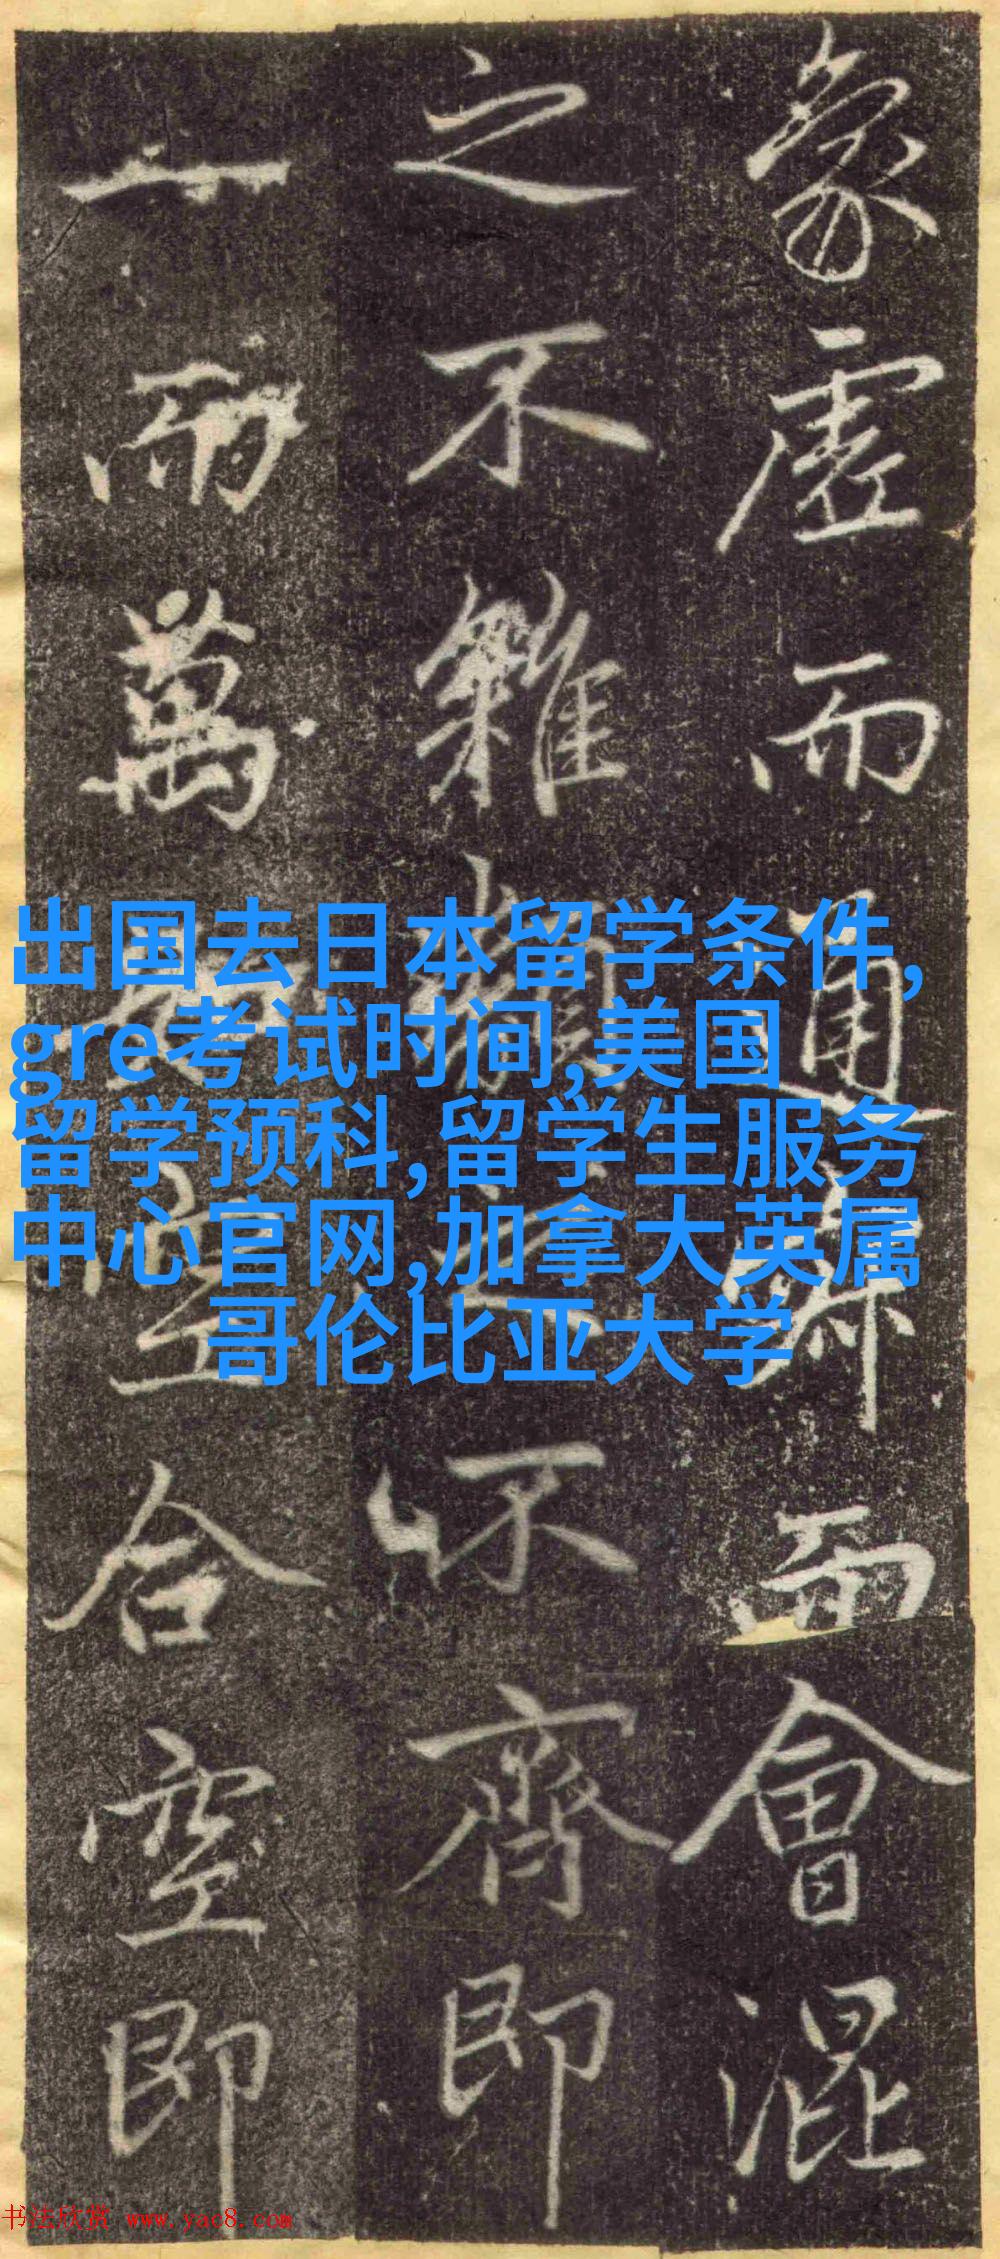 象虛而通而會混
之不雜類之不齊即
一而萬合空即
出国去日本留学条件,
gre考试时间,美国
留学预科,留学生服务
中心官网,加拿大英属
哥伦比亚大学
书法欣赏 www.yac8.com